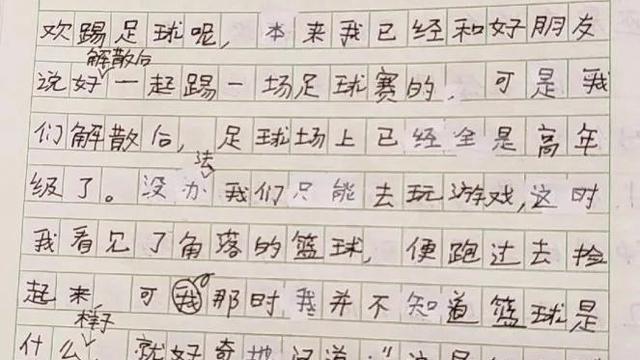 欢踢足球呢，本来我已经和好朋友
解散后
说好一起踢一场足球赛的，可是我
们解散后，足球场上已经全是高年
法
级了。没办我们只能去玩游戏，这时
我看见了角落的篮球，便跑过去捡
起来，可我那时我并不知道篮球是
样子
什么，就好奇地问道："这是